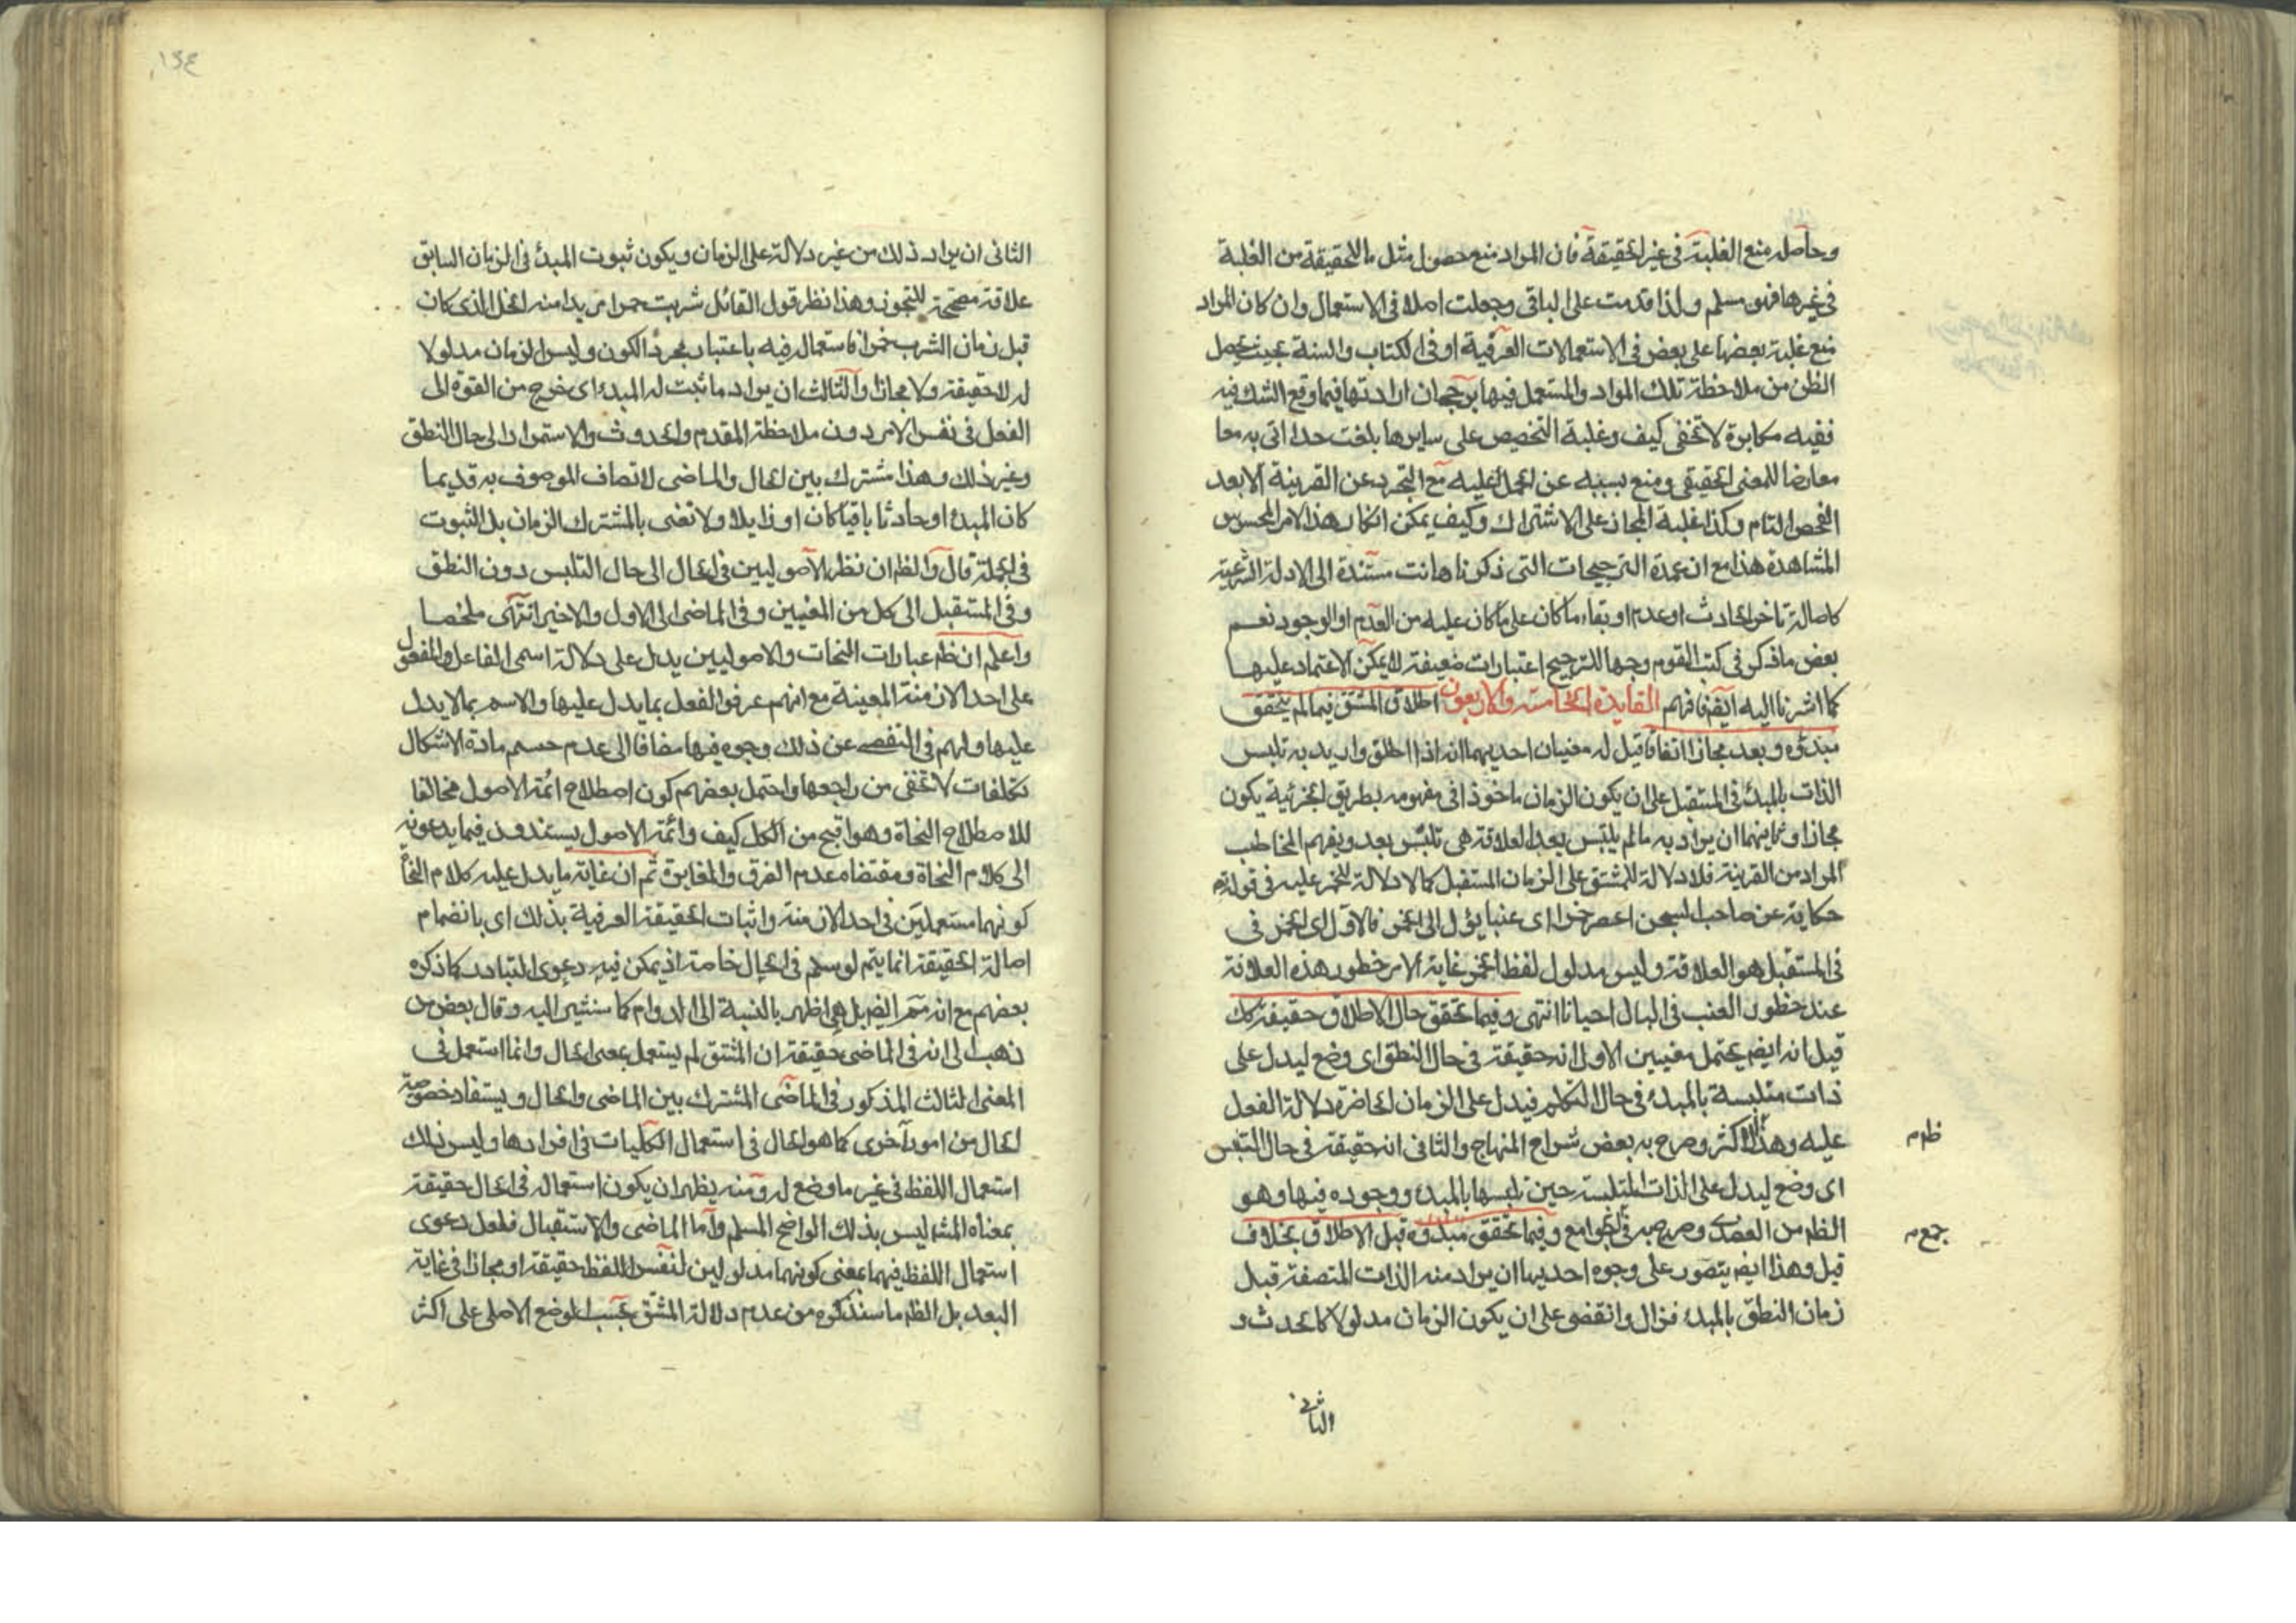 وحاصله منع الغلبة في غير الحقيقة فان المراد منع حصول مثل ما للحقيقة من الغلبة
في غيرها فهو مسلم ولذا قدمت على الباقي وجعلت اصلا في الاستعمال وان كان المراد
منع غلبة بعضها على بعض في الاستعمالات العرفية او في الكتاب والسنة بحيث يحصل
الظن من ملاحظة تلك المواد والمستعمل فيها برجحان ارادتها فيما وقع الشك فيه
ففيه مكابرة لا تخفى كيف وغلبة التخصيص على سايرها بلغت حدا اتى به معا
معارضا للمعنى الحقيقي ومنع بسببه عن الحمل عليه مع التجرد عن القرينة الا بعد
الفحص التام وكذا غلبة المجاز على الاشتراك وكيف يمكن انكار هذا الامر المحسوس
المشاهدة هذا مع ان عمدة الترجيحات التي ذكرناها نت مستندة الى الادلة الشرعية
كاصالة تاخر الحادث او عدمه او بقاء ما كان على ما كان عليه من العدم او الوجود نعم
بعض ما ذكر في كتب القوم وجها للترجيح اعتبارات ضعيفة لا يمكن الاعتماد عليها
كما اشرنا اليه ايضا فافهم الفايدة الخامسة والاربعون اطلاق المشتق فيما لم يتحقق
مبدؤه وبعد مجازا اتفاقا قيل له معنيان احديهما انه اذا اطلق واريد به تلبس
الذات بالمبدء في المستقبل على ان يكون الزمان ماخوذا في مفهومه بطريق الجزئية يكون
مجازا وثانيهما ان يراد به ما لم يلتبس بعد العلاقة هي تلبس بعد ويفهم المخاطب
المراد من القرينة فلا دلالة للمشتق على الزمان المستقبل كما لا دلالة للخمر عليه في قوله تع
حكاية عن صاحب السجن اعصر خمرا اى عنبا يؤل الى الخمر فالاول الى الخمر في
في المستقبل هو العلاقة وليس مدلول لفظ الخمر غاية الامر خطور هذه العلاقة
عند خطور العنب في البال احيانا انتهى وفيما تحقق حال الاطلاق حقيقة كك
قيل انه ايضم يحتمل معنيين الاول انه حقيقة في حال النطق اى وضع ليدل على
ذات متلبسة بالمبدء في حال التكلم فيدل على الزمان الحاضرة دلالة الفعل
عليه وهذا الاكثر وصرح به بعض شراح المنهاج والثاني انه حقيقة في حال التلبس
ظم
اى وضع ليدل على الذات المتلبسة حين تلبسها بالمبدء ووجوده فيها وهو
الظم من العضدى وصرح به في الجوامع وفيما تحقق مبدؤه قبل الاطلاق بخلاف
جمع
قيل وهذا ايضم يتصور على وجوه احديها ان يراد منه الذات المتصفة قبل
زمان النطق بالمبدء فزال وانقضى على ان يكون الزمان مدلولا كما يحدث و
الثاني
الثاني ان يراد ذلك من غير دلالة على الزمان ويكون ثبوت المبدء في الزمان السابق
علاقة مصححة للتجوز وهذا نظر قول القائل شربت خمرا مريدا منه الخل الذي كان
قبل زمان الشرب خمرا فاستعماله فيه باعتبار مجرد الكون وليس الزمان مدلولا
له لا حقيقة ولا مجازا والثالث ان يراد ما ثبت له المبدء اى خرج من القوة الى
الفعل في نفس الامر دون ملاحظة المقدم والحدوث والاستمرار الى حال النطق
وغير ذلك وهذا مشترك بين الحال والماضي لاتصاف الموصوف به قديما
كان المبدء او حادثا باقيا كان او زايلا ولا تعنى بالمشترك الزمان بل الثبوت
في الجملة قال والظم ان نظر الاصوليين في الحال الى حال التلبس دون النطق
وفي المستقبل الى كل من المعنيين وفي الماضي الى الاول والاخير انتهى ملخصا
واعلم ان ظم عبارات النحات والاصوليين يدل على دلالة اسمى الفاعل والمفعول
على احد الازمنة المعينة مع انهم عرفوا الفعل بما يدل عليها والاسم بما لا يدل
عليها ولهم في التفصى عن ذلك وجوه فيها مضافا الى عدم حسم مادة الاشكال
تكلفات لا تخفى من راجعها واحتمل بعضهم كون اصطلاح ائمة الاصول مخالفا
للاصطلاح النحاة وهو اقبح من الكل كيف وائمة الاصول يستندون فيما يدعونه
الى كلام النحاة ومقتضاه عدم الفرق والمغايرة ثم ان غاية ما يدل عليه كلام النحاة
كونهما مستعملين في احد الازمنة واثبات الحقيقة العرفية بذلك اى بانضمام
اصالة الحقيقة انما يتم لو سلم في الحال خاصة اذ يمكن فيه دعوى التبادر كما ذكره
بعضهم مع انه ثم ايضم بل هى اظهر بالنسبة الى الدوام كما سنشير اليه وقال بعض من
ذهب الى انه في الماضي حقيقة ان المشتق لم يستعمل بمعنى الحال وانما استعمل في
المعنى الثالث المذكور في الماضي المشترك بين الماضي والحال ويستفاد خصوصية
الحال من امور اخرى كما هو الحال في استعمال الكليات في افرادها وليس ذلك
استعمال اللفظ في غير ما وضع له ومنه يظهر ان يكون استعماله في الحال حقيقة
بمعناه المشه ليس بذلك الواضح المسلم واما الماضي والاستقبال فلعل دعوى
استعمال اللفظ فيهما بمعنى كونهما مدلولين لنفس اللفظ حقيقة او مجازا في غاية
البعد بل الظم ما سنذكره من عدم دلالة المشتق بحسب الوضع الاصلى على اكثر